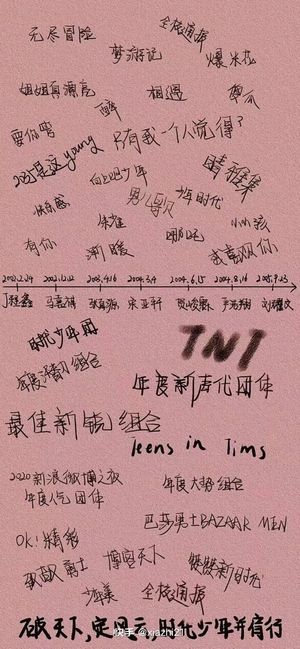 无尽冒险
全核通报
梦游记
爆米花
姐姐真漂亮
相遇
醉
要你管
只有我一个人觉得?
就是这young
向上吧少年
晴雅集
男儿歌
少年时代
快乐感
朱雀
明日记
小小孩
有你
渐暖
我喜欢你
2002.2.24 2002.12.12 2003.4.16 2004.3.4 2004.6.15 2004.8.16 2005.9.23
丁程鑫 马嘉祺 张真源 宋亚轩 贺峻霖 严浩翔 刘耀文
时代少年团
TNT
年度潜力组合
年度新声代团体
最佳新锐组合
Teens in Tims
2020新浪微博之夜
年度人气团体
年度大势组合
芭莎男士BAZAAR MEN
OK!精彩
博客天下
智族
新时代
少年美
全核通报
破天下,定风云,时代少年并肩行
快手 @xiazhi21